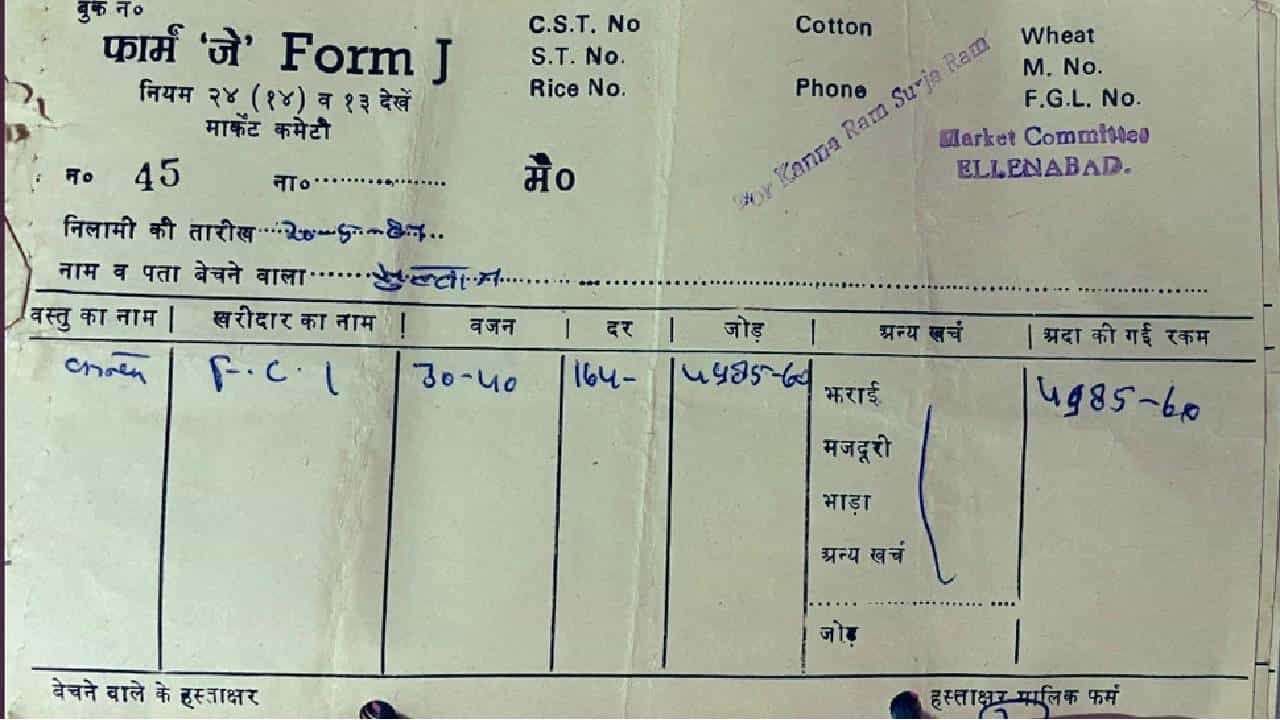 बुक न०
फार्म 'जे' Form J
नियम २४ (१४) व १३ देखें
मार्केट कमेटी
C.S.T. No
S.T. No.
Rice No.
Cotton
Phone
Wheat
M. No.
F.G.L. No.
For Kanna Ram Surja Ram
Market Committee
ELLENABAD.
न० 45 ना०
मै०
निलामी की तारीख
नाम व पता बेचने वाला
वस्तु का नाम | खरीदार का नाम | वजन | दर | जोड़ | अन्य खर्च | अदा की गई रकम
F.C.I 30-40 164-
भराई
मजदूरी
भाड़ा
अन्य खर्च
जोड़
बेचने वाले के हस्ताक्षर हस्ताक्षर मालिक फर्म